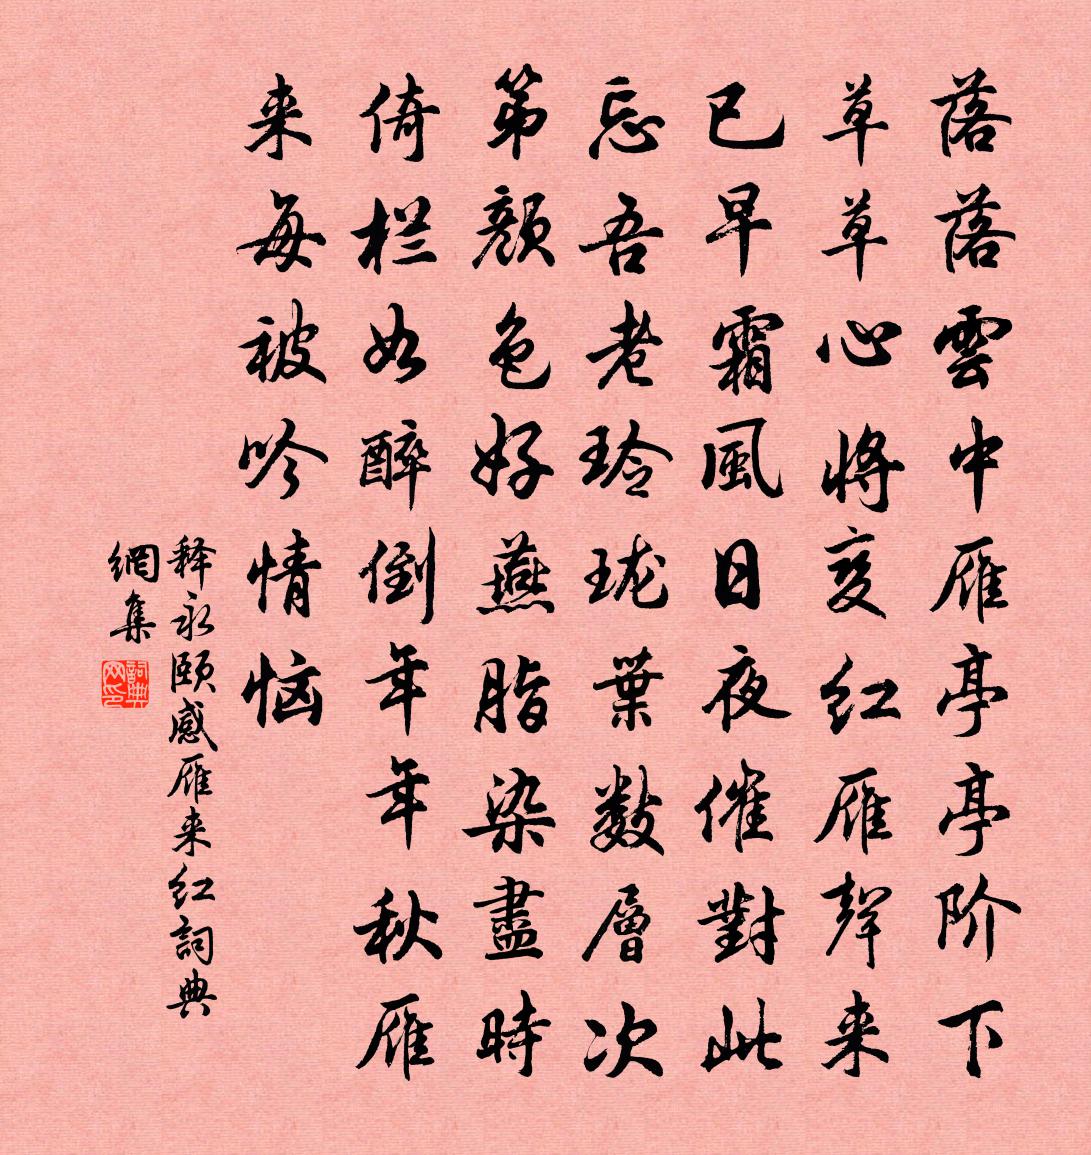 落落雲中雁亭亭阶下
草草心将变红雁聲来
已早霜風日夜催對此
忘吾老玲珑葉数層次
第颜色好燕脂染盡時
倚栏如醉倒年年秋雁
来每被吟情恼
释永颐感雁来红詞典
網集
詞典网印